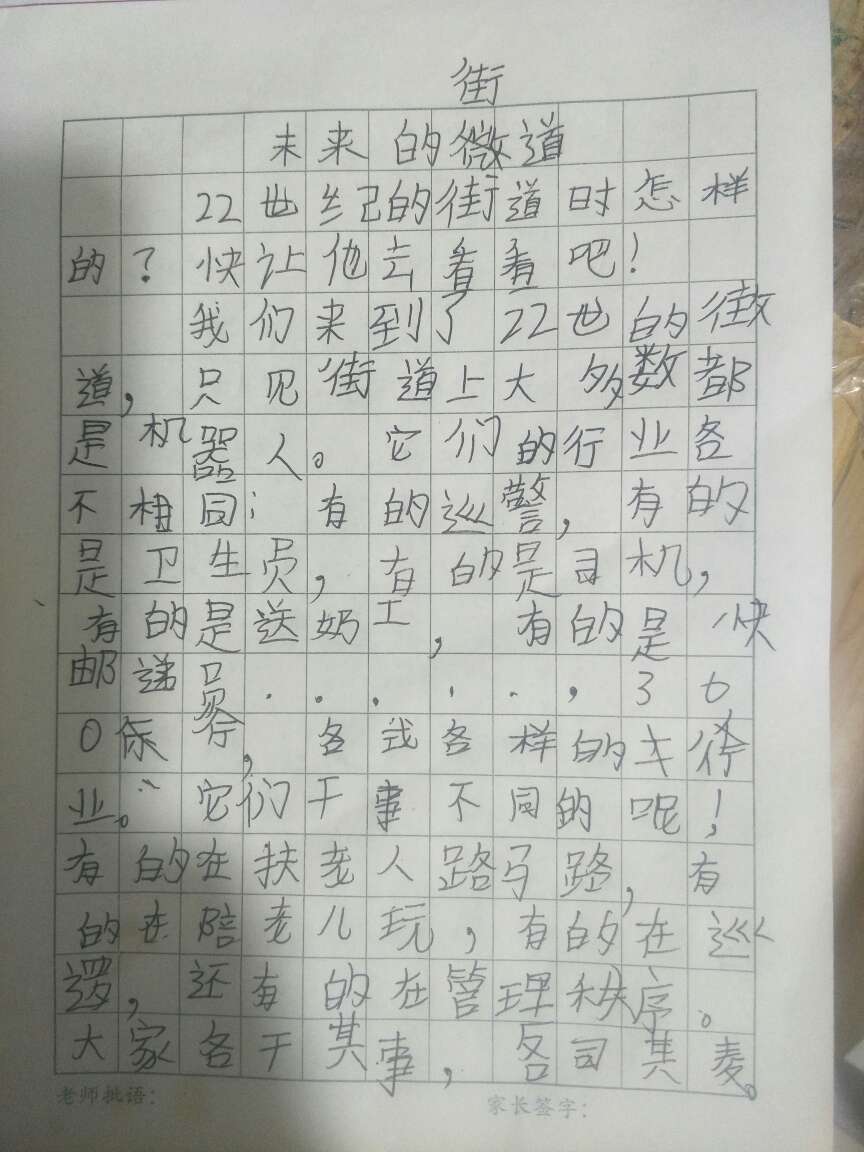 街
未来的微道
22世纪的街道时怎样
的？快让他去看看吧！
我们来到了22世的街
道，只见街道上大多数都
是机器人。它们的行业各
不相同；有的巡警，有的
是卫生员，有的是司机，
有的是送奶工，有的是快
邮递员......，36
0行，各式各样的行
业。它们干事不同的呢！
有的在扶老人路马路，有
的在陪老儿玩，有的在巡
逻，还有的在管理秩序。
大家各干其事，各司其麦。
老师批语： 家长签字：